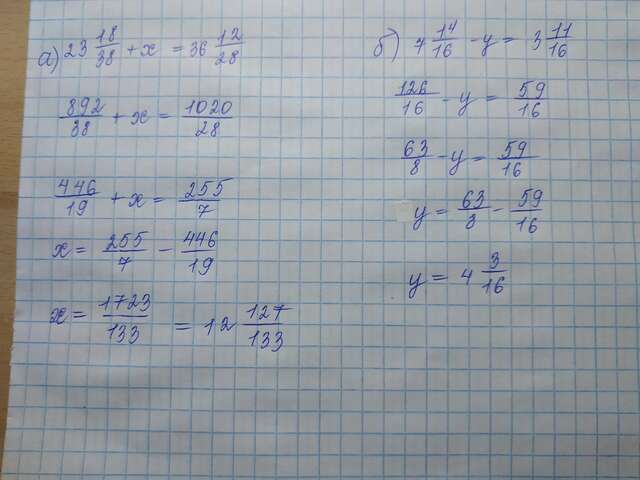 а) 23 18/38 + x = 36 12/28
892/38 + x = 1020/28
446/19 + x = 255/7
x = 255/7 - 446/19
x = 1723/133 = 12 127/133
б) 7 14/16 - y = 3 11/16
126/16 - y = 59/16
63/8 - y = 59/16
y = 63/8 - 59/16
y = 4 3/16